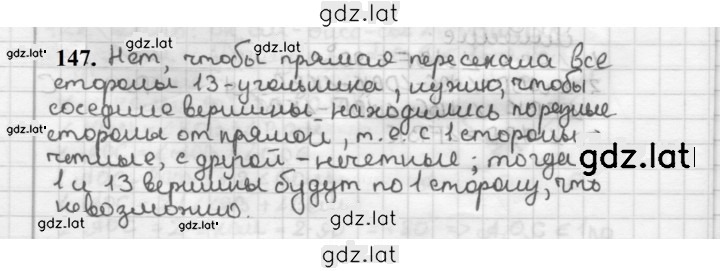 gdz.lat
gdz.lat
gdz.lat gdz.lat
147. Нет, чтобы прямая пересекала все
стороны 13-угольника, нужно, чтобы
соседние вершины находились по разные
gdz.lat
стороны от прямой, т.е. с 1 стороны -
четные, с другой - нечетные; тогда
gdz.lat
gdz.lat
1 и 13 вершины будут по 1 сторону, что
невозможно.
gdz.lat
gdz.lat
gdz.lat
gdz.lat